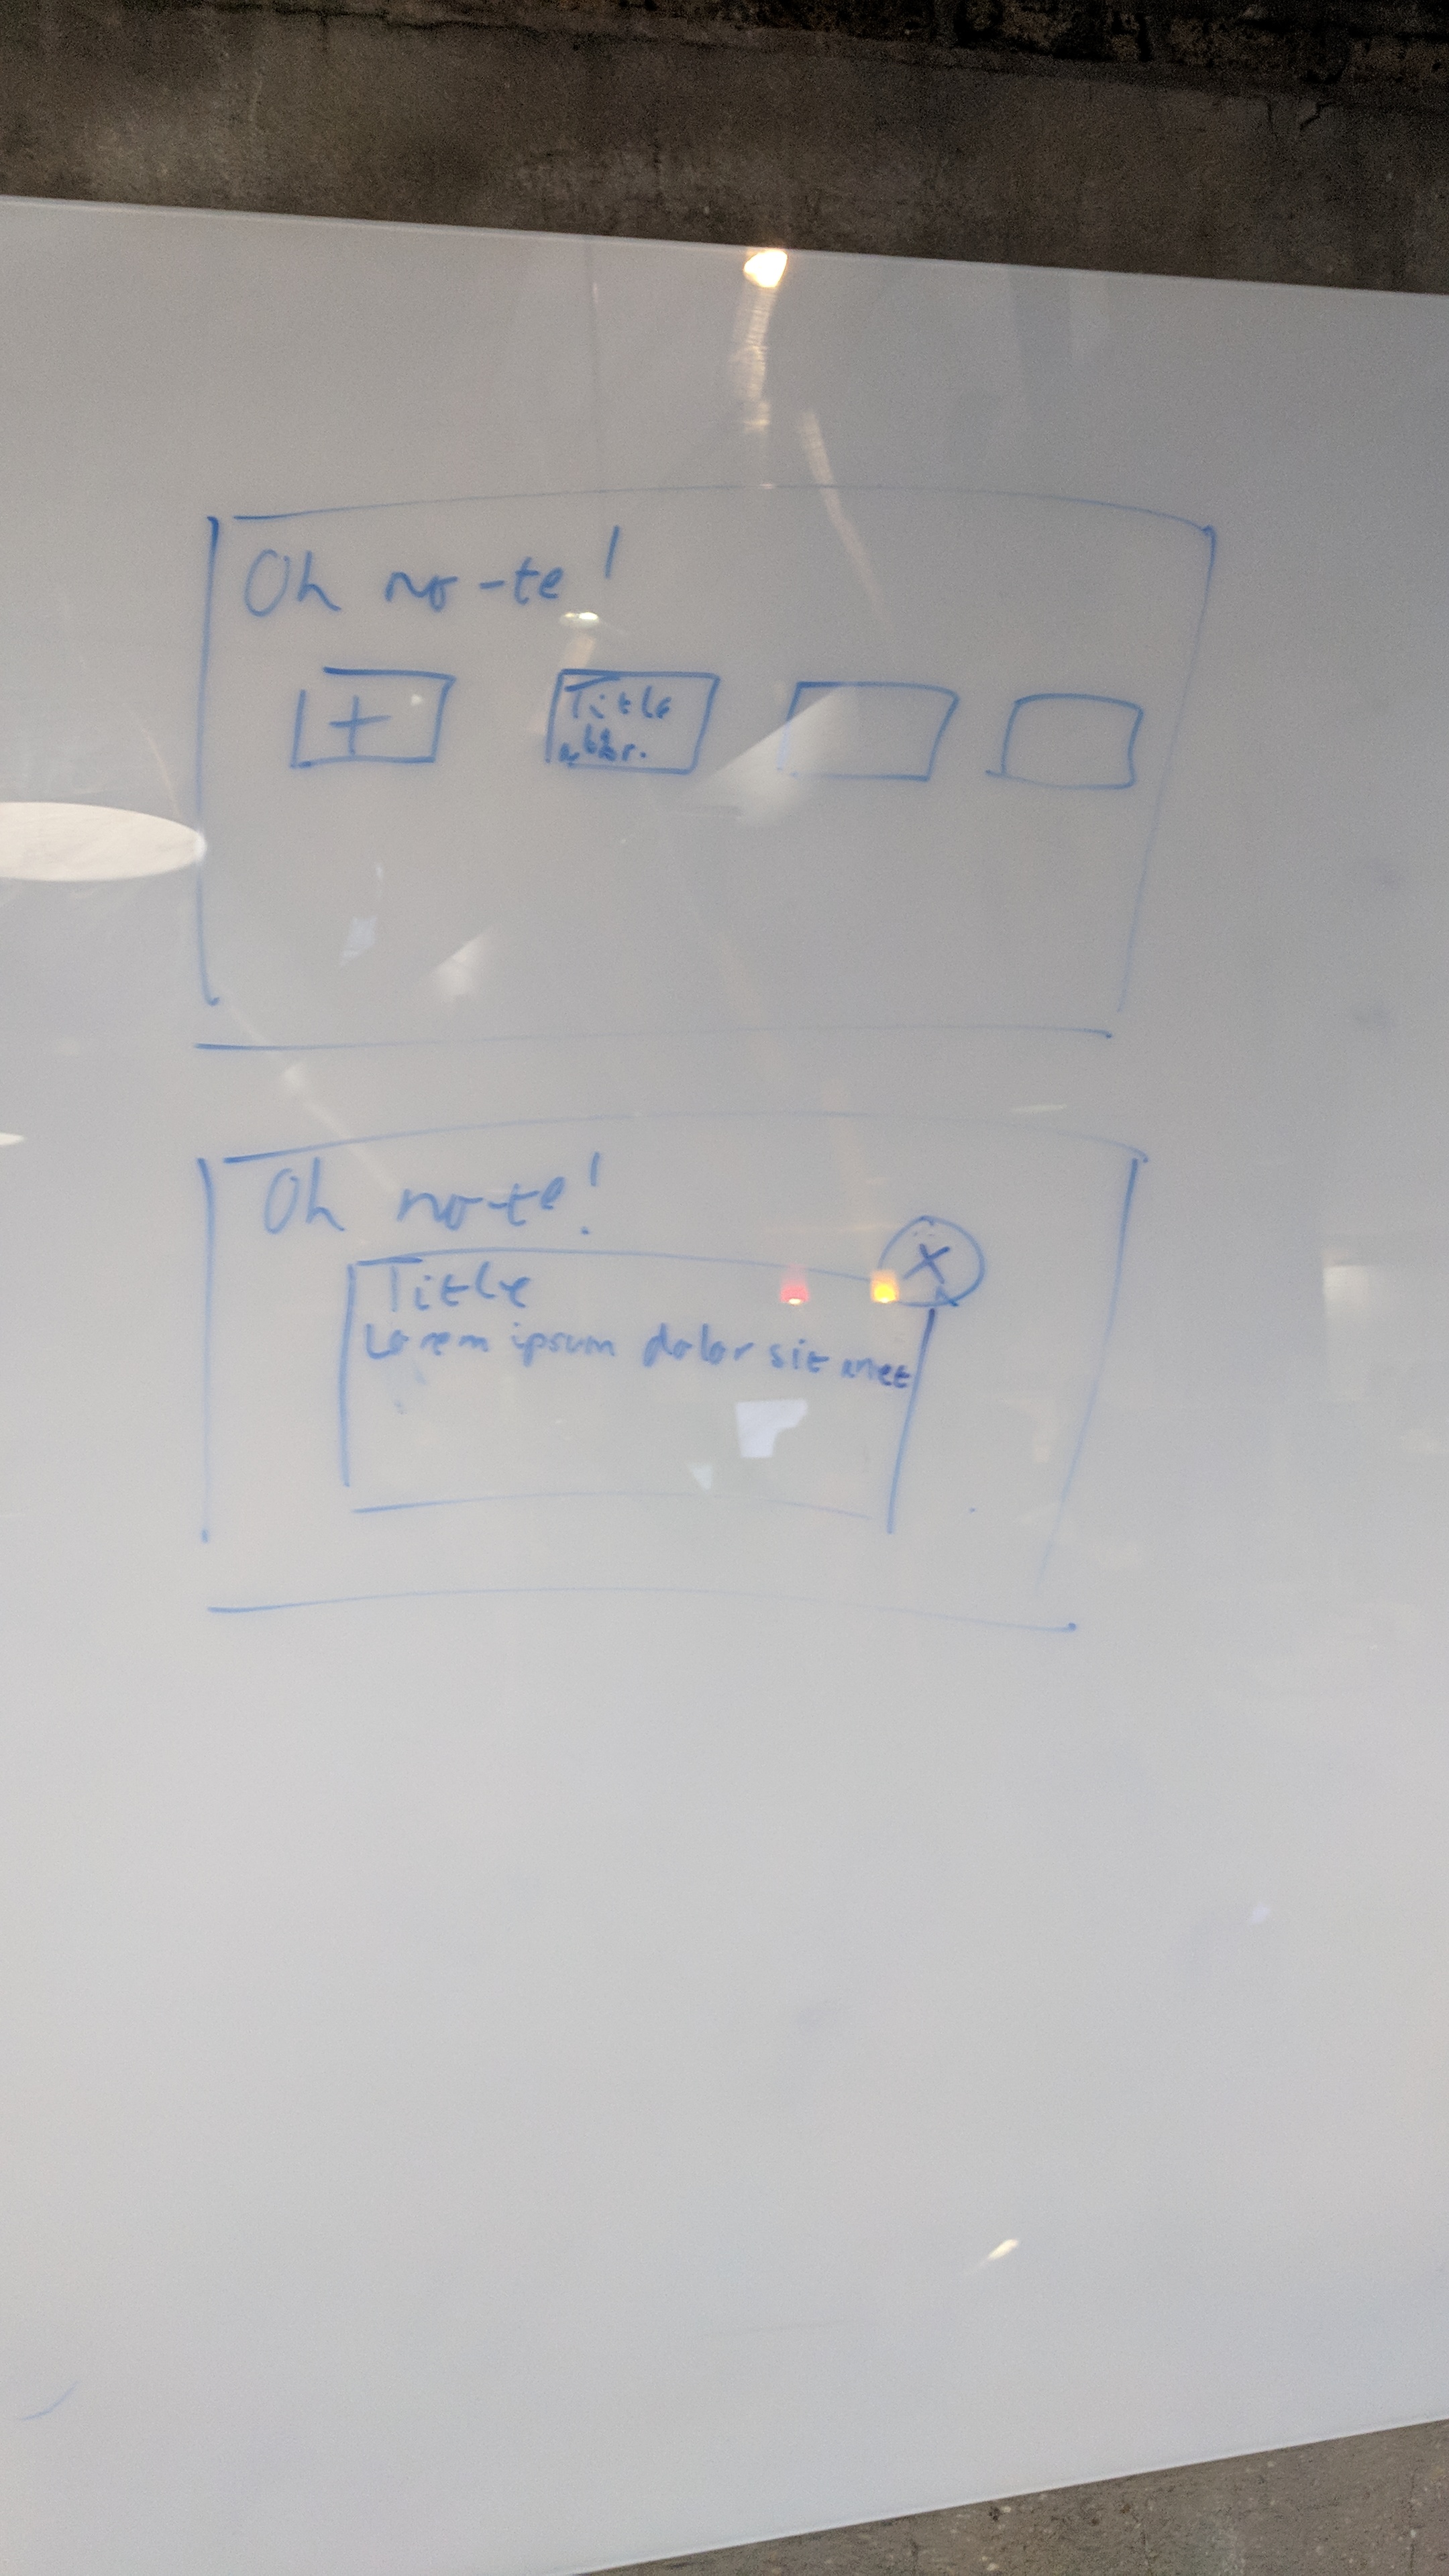 Oh no-te!
+
Title
abbr.
Oh no-te!
X
Title
Lorem ipsum dolor sit amet